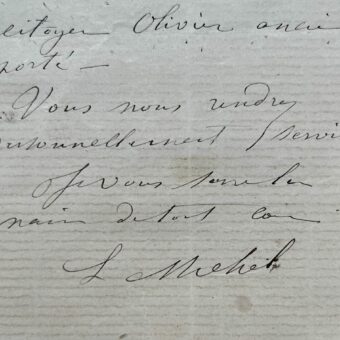 citoyen Olivier anci
porté —
Vous nous rendrez
personnellement service
Je vous serre la
main de tout coeu
L Michel